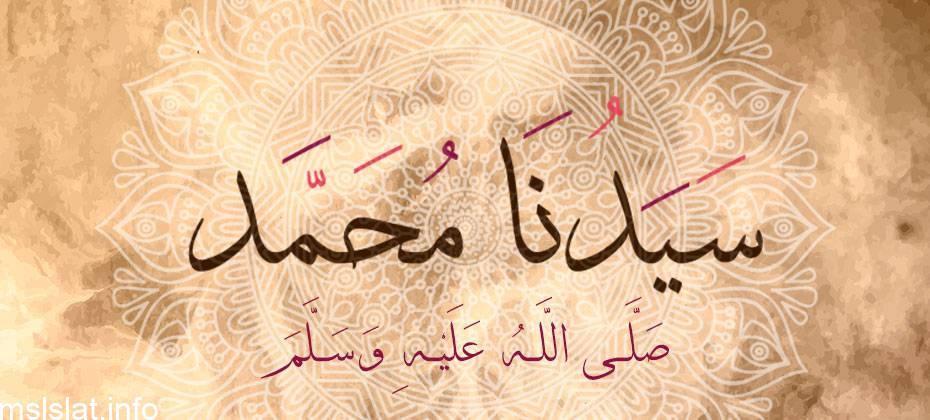 سَيَدُنَا مُحَمَّد
صَلَّى اللَّهُ عَلَيْهِ وَسَلَّمَ
mslslat.info